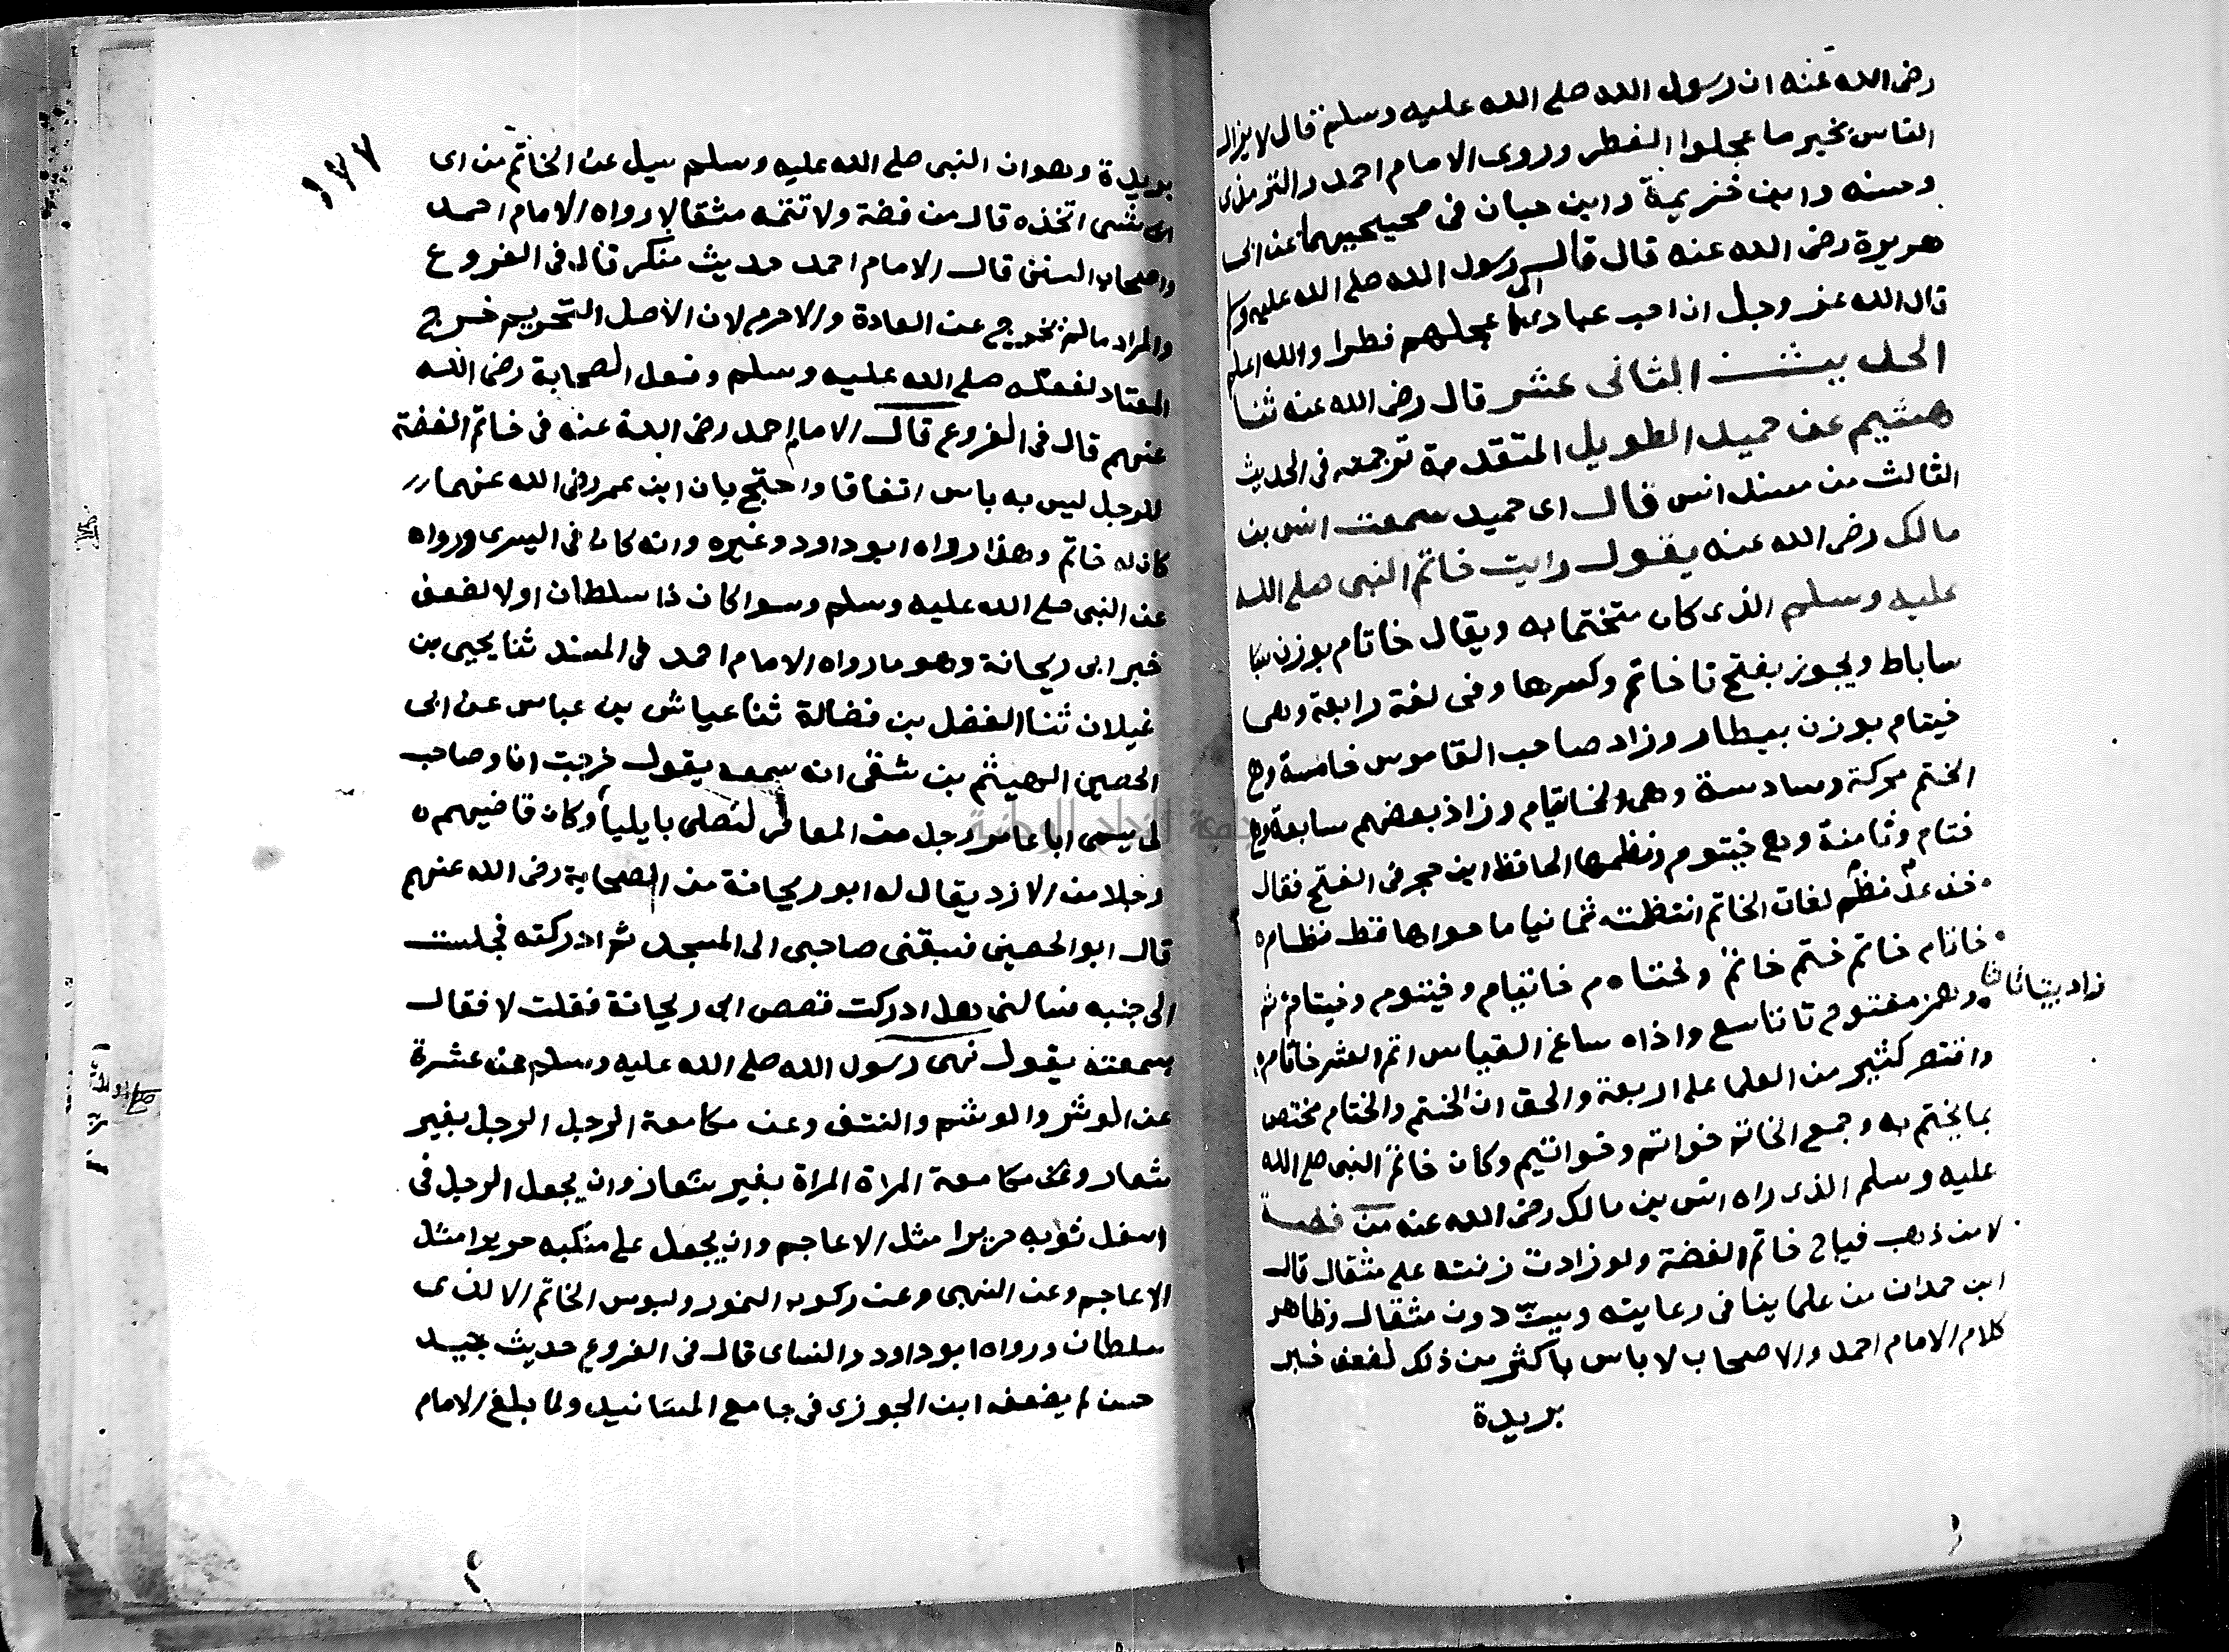 رضى الله عنه ان رسول الله صلى الله عليه وسلم قال لا يزال
الناس بخير ما عجلوا الفطر وروى الامام احمد والترمذى
وحسنه وابن خزيمة وابن حبان فى صحيحيهما عن ابى
هريرة رضى الله عنه قال قال رسول الله صلى الله عليه وسلم
قال الله عز وجل ان احب عبادى الى اعجلهم فطرا والله اعلم
الحديث الثانى عشر قال رضى الله عنه ثنا
هشيم عن حميد الطويل المتقدمة ترجمته فى الحديث
الثالث من مسند انس قال اى حميد سمعت انس بن
مالك رضى الله عنه يقول رايت خاتم النبى صلى الله
عليه وسلم الذى كان متختما به ويقال خاتام بوزن
ساباط ويجوز بفتح تا خاتم وكسرها وفى لغة رابعة وهى
خيتام بوزن بيطار وزاد صاحب القاموس خامسة وهى
الختم محركة وسادسة وهى الخاتيام وزاد بعضهم سابعة وهى
ختام وثامنة وهى خيتوم ونظمها الحافظ ابن حجر فى الفتح فقال
خذ عدّ نظم لغات الخاتم انتظمت ثمانيا ما حواها قط نظام
خاتام خاتم ختم خاتم وختام خاتيام وخيتوم وخيتام ثم
زاد بيتا ثانيا
وهمز مفتوح تا تاسع واذا ساغ القياس اتم العشر خاتام
واقتصر كثير من العلما على اربعة والحق ان الختم والختام مختص
بما يختم به وجمع الخاتم خواتم وخواتيم وكان خاتم النبى صلى الله
عليه وسلم الذى راه انس بن مالك رضى الله عنه من فضة
لا من ذهب فيباح خاتم الفضة ولو زادت زنته على مثقال قال
ابن حمدان من علماينا فى رعايته ويسن دون مثقال وظاهر
كلام الامام احمد والاصحاب لا باس باكثر من ذلك لضعف خبر
بريدة
١٧٧
بريدة وهو ان النبى صلى الله عليه وسلم سيل عن الخاتم من اى
شى اتخذه قال من فضة ولا تتمه مثقالا رواه الامام احمد
واصحاب السنن قال الامام احمد حديث منكر قال فى الفروع
والمراد مالم يخرج عن العادة والاحرم لان الاصل التحريم خرج
المعتاد لفعله صلى الله عليه وسلم وفعل الصحابة رضى الله
عنهم قال فى الفروع قال الامام احمد رضى الله عنه فى خاتم الفضة
للرجل ليس به باس اتفاقا واحتج بان ابن عمر رضى الله عنهما
كان له خاتم وهذا رواه ابو داود وغيره وانه كان فى اليسرى ورواه
عن النبى صلى الله عليه وسلم وسوا كان ذا سلطان اولا لضعف
خبر ابى ريحانة وهو ما رواه الامام احمد فى المسند ثنا يحيى بن
غيلان ثنا الفضل بن فضالة ثنا عياش بن عباس عن ابى
الحصين الهيثم بن شفى انه سمعه يقول خرجت انا وصاحب
لى يسمى ابا عامر رجل من المعافر لنصلى بايليا وكان قاضيهم
رجلا من الازد يقال له ابو ريحانة من الصحابة رضى الله عنهم
قال ابو الحصين فسبقنى صاحبى الى المسجد ثم ادركته فجلست
الى جنبه فسالنى هل ادركت قصص ابى ريحانة فقلت لا فقال
سمعته يقول نهى رسول الله صلى الله عليه وسلم عن عشرة
عن الوشر والوشم والنتف وعن مكامعة الرجل الرجل بغير
شعار وعن مكامعة المراة المراة بغير شعار وان يجعل الرجل فى
اسفل ثوبه حريرا مثل الاعاجم وان يجعل على منكبه حريرا مثل
الاعاجم وعن النهبى وعن ركوب النمور ولبوس الخاتم الا لذى
سلطان ورواه ابو داود والنساى قال فى الفروع حديث جيد
حسن لم يضعفه ابن الجوزى فى جامع المسانيد ولما بلغ الامام